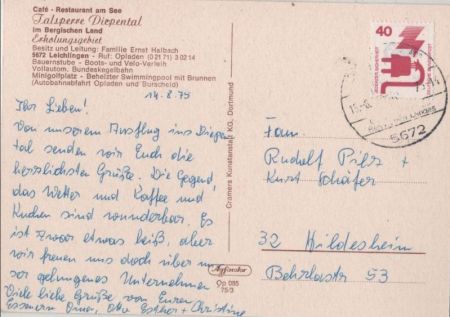 Café - Restaurant am See
Talsperre Diepental
im Bergischen Land
Erholungsgebiet
Besitz und Leitung: Familie Ernst Halbach
5672 Leichlingen - Ruf: Opladen (0 21 71) 3 02 14
Bauernstube - Boots- und Velo-Verleih
Vollautom. Bundeskegelbahn
Minigolfplatz - Beheizter Swimmingpool mit Brunnen
(Autobahnabfahrt Opladen und Burscheid)
14.8.75
Ihr Lieben!
Von unserem Ausflug ins Diepen
tal senden wir Euch die
herzlichsten Grüße. Die Gegend,
das Wetter und Kaffee und
Kuchen sind wunderbar. Es
ist zwar etwas heiß, aber
wir freuen uns doch über un-
ser gelungenes Unternehmen
Viele liebe Grüße von Euren
Essenern Oma, Otto Esther + Christine
Cramers Kunstanstalt KG, Dortmund
Agfacolor
Op 085
75/3
40
5672
Fam.
Rudolf Pilz +
Kurt Schäfer
32 Hildesheim
53